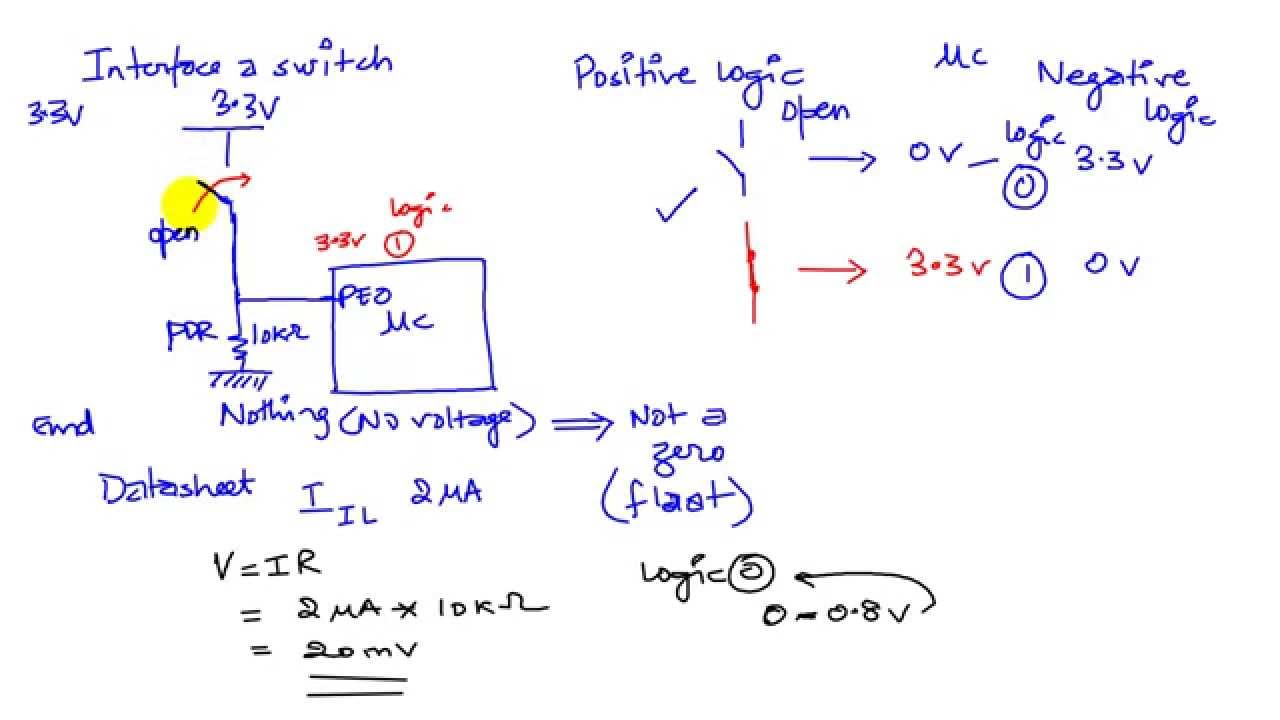 Interface a switch
3.3V
3.3V
open
3.3V
logic
1
PE0
MC
PDR
10KΩ
Positive logic
open
MC
Negative logic
0V – logic 0
3.3V
3.3V
1
0V
End
Nothing (No voltage) ⟹ Not a zero
(float)
Datasheet I_IL 2μA
V = IR
= 2μA × 10KΩ
= 20mV
logic 0
0 – 0.8V